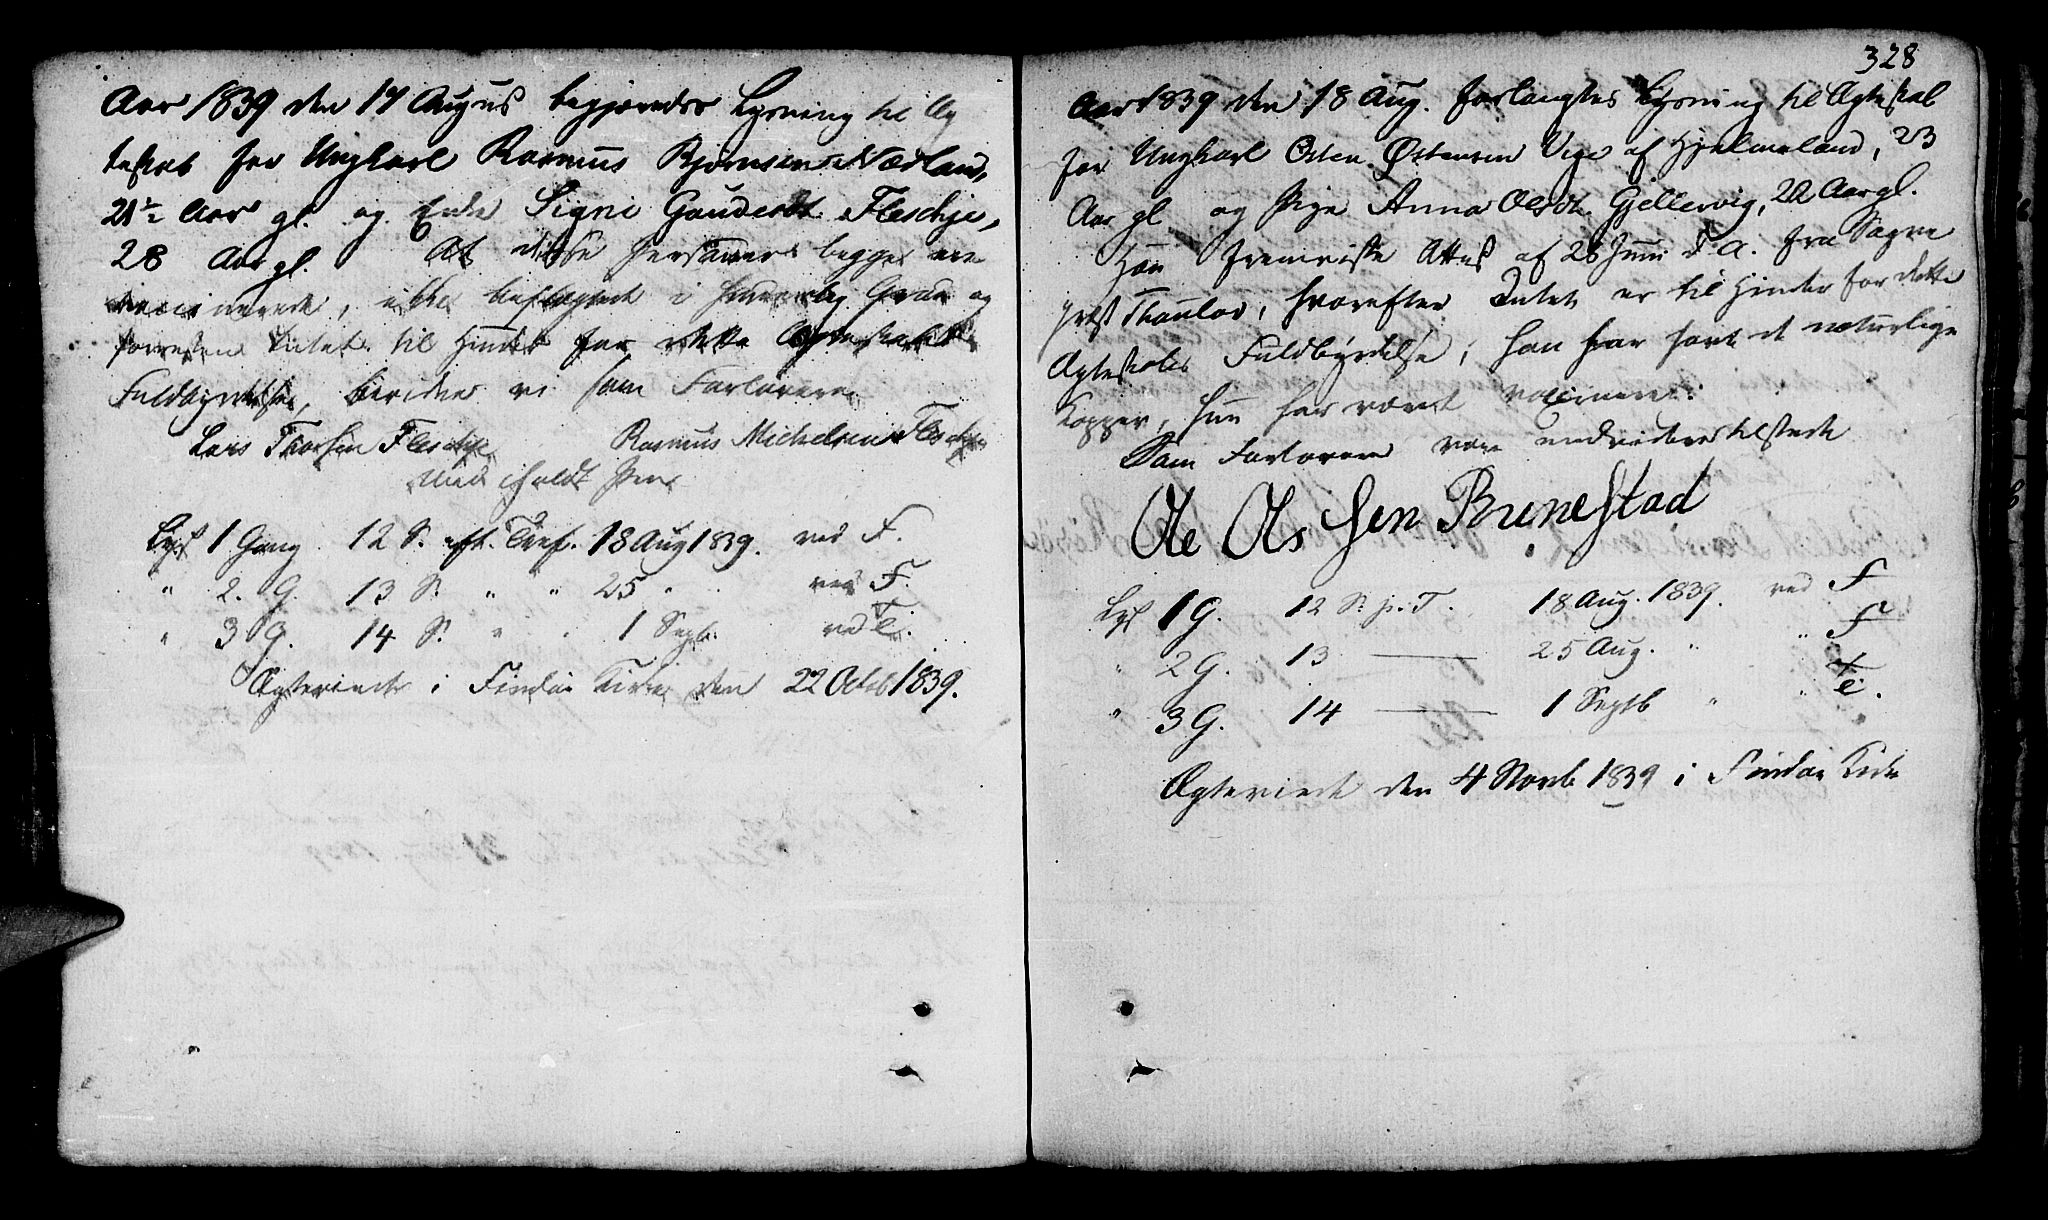 Aar 1839 den 17 Augus begjæredes Lysning til Æg
teskab for Ungkarl Rasmus Bjørnsen Nædland,
21½ Aar gl. og Enke Signi Gaudesdt. Fleskje,
28 Aar gl. At disse Personer begge ere
vaccinerede, ikke beslægtede i forbuden Grad og
forresten Intet til Hinder for dette Ægteskabs
Fuldbyrdelse, bevidne vi som Forlovere
Lars Thorsen Fleskje Rasmus Michelsen Fleskje
med holdt Pen
Lyst 1 Gang 12 S. eft. Tref. 18 Aug 1839. ved F.
" 2. G. 13 S. " " 25 " ved F.
" 3 G. 14 S. " " 1 Septb. ved F.
Ægteviede i Findøe Kirke den 22 Octob 1839.
328
Aar 1839 den 18 Aug. forlangtes Lysning til Ægteskab
for Ungkarl Osten Østensen Vige af Hjelmeland, 23
Aar gl og Pige Anna Olsdt. Gjellervig, 22 Aar gl.
Han fremviste Attest af 28 Juni d. A. fra Sogne
præst Thaulow, hvorefter Intet er til Hinder for dette
Ægteskabs Fuldbyrdelse; han har havt de naturlige
Kopper, hun har været vaccineret.
Som Forlovere vare undertegnede tilstede
Ole Olsen Brunestad
Lyst 1 G. 12 S. p. T. 18 Aug. 1839. ved F
" 2 G. 13 — 25 Aug. " " F
" 3 G. 14 — 1 Septb " "
Ægteviede den 4 Novb 1839 i Findøe Kirke